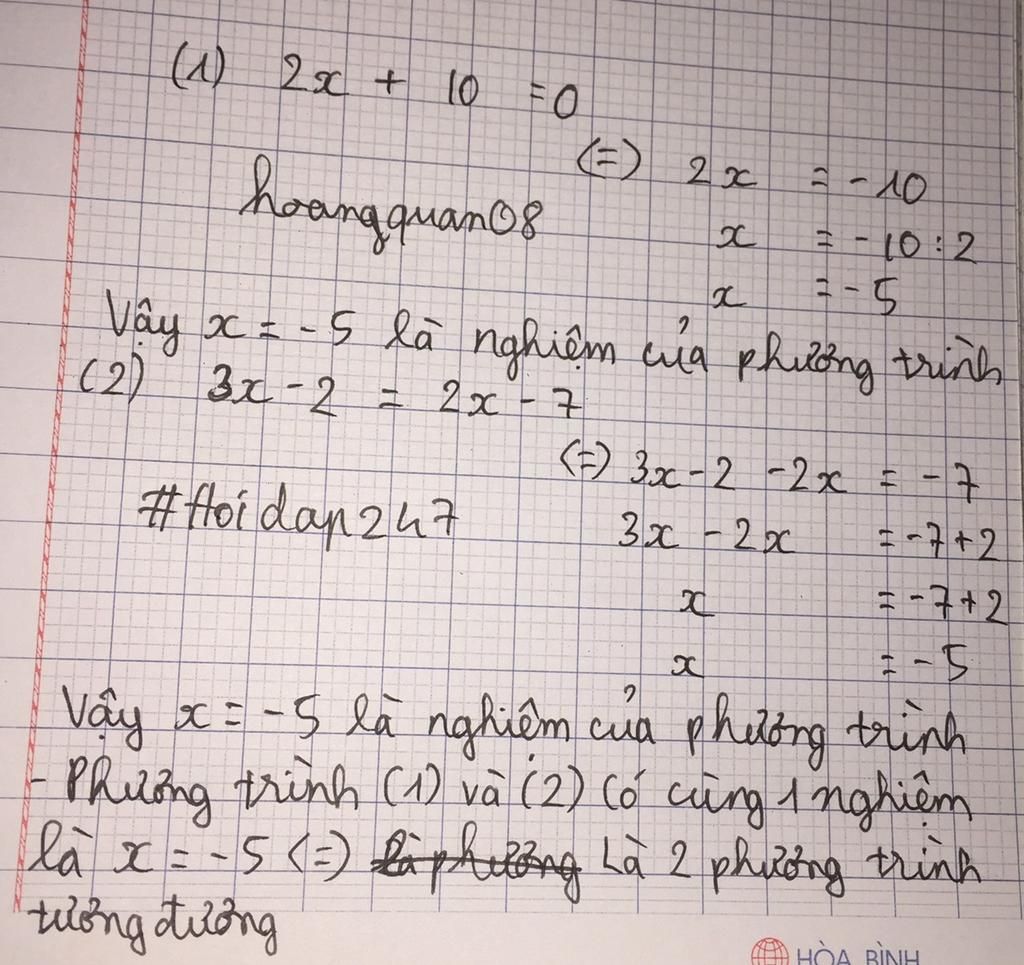 (1) 2x + 10 = 0
(=) 2x = -10
hoangquan08
x = -10 : 2
x = -5
Vậy x = -5 là nghiệm của phương trình
(2) 3x - 2 = 2x - 7
(=) 3x - 2 - 2x = -7
#Hoidap247
3x - 2x = -7 + 2
x = -7 + 2
x = -5
Vậy x = -5 là nghiệm của phương trình
- Phương trình (1) và (2) có cùng 1 nghiệm
là x = -5 (=) là phương Là 2 phương trình
tương đương
HÒA BÌNH